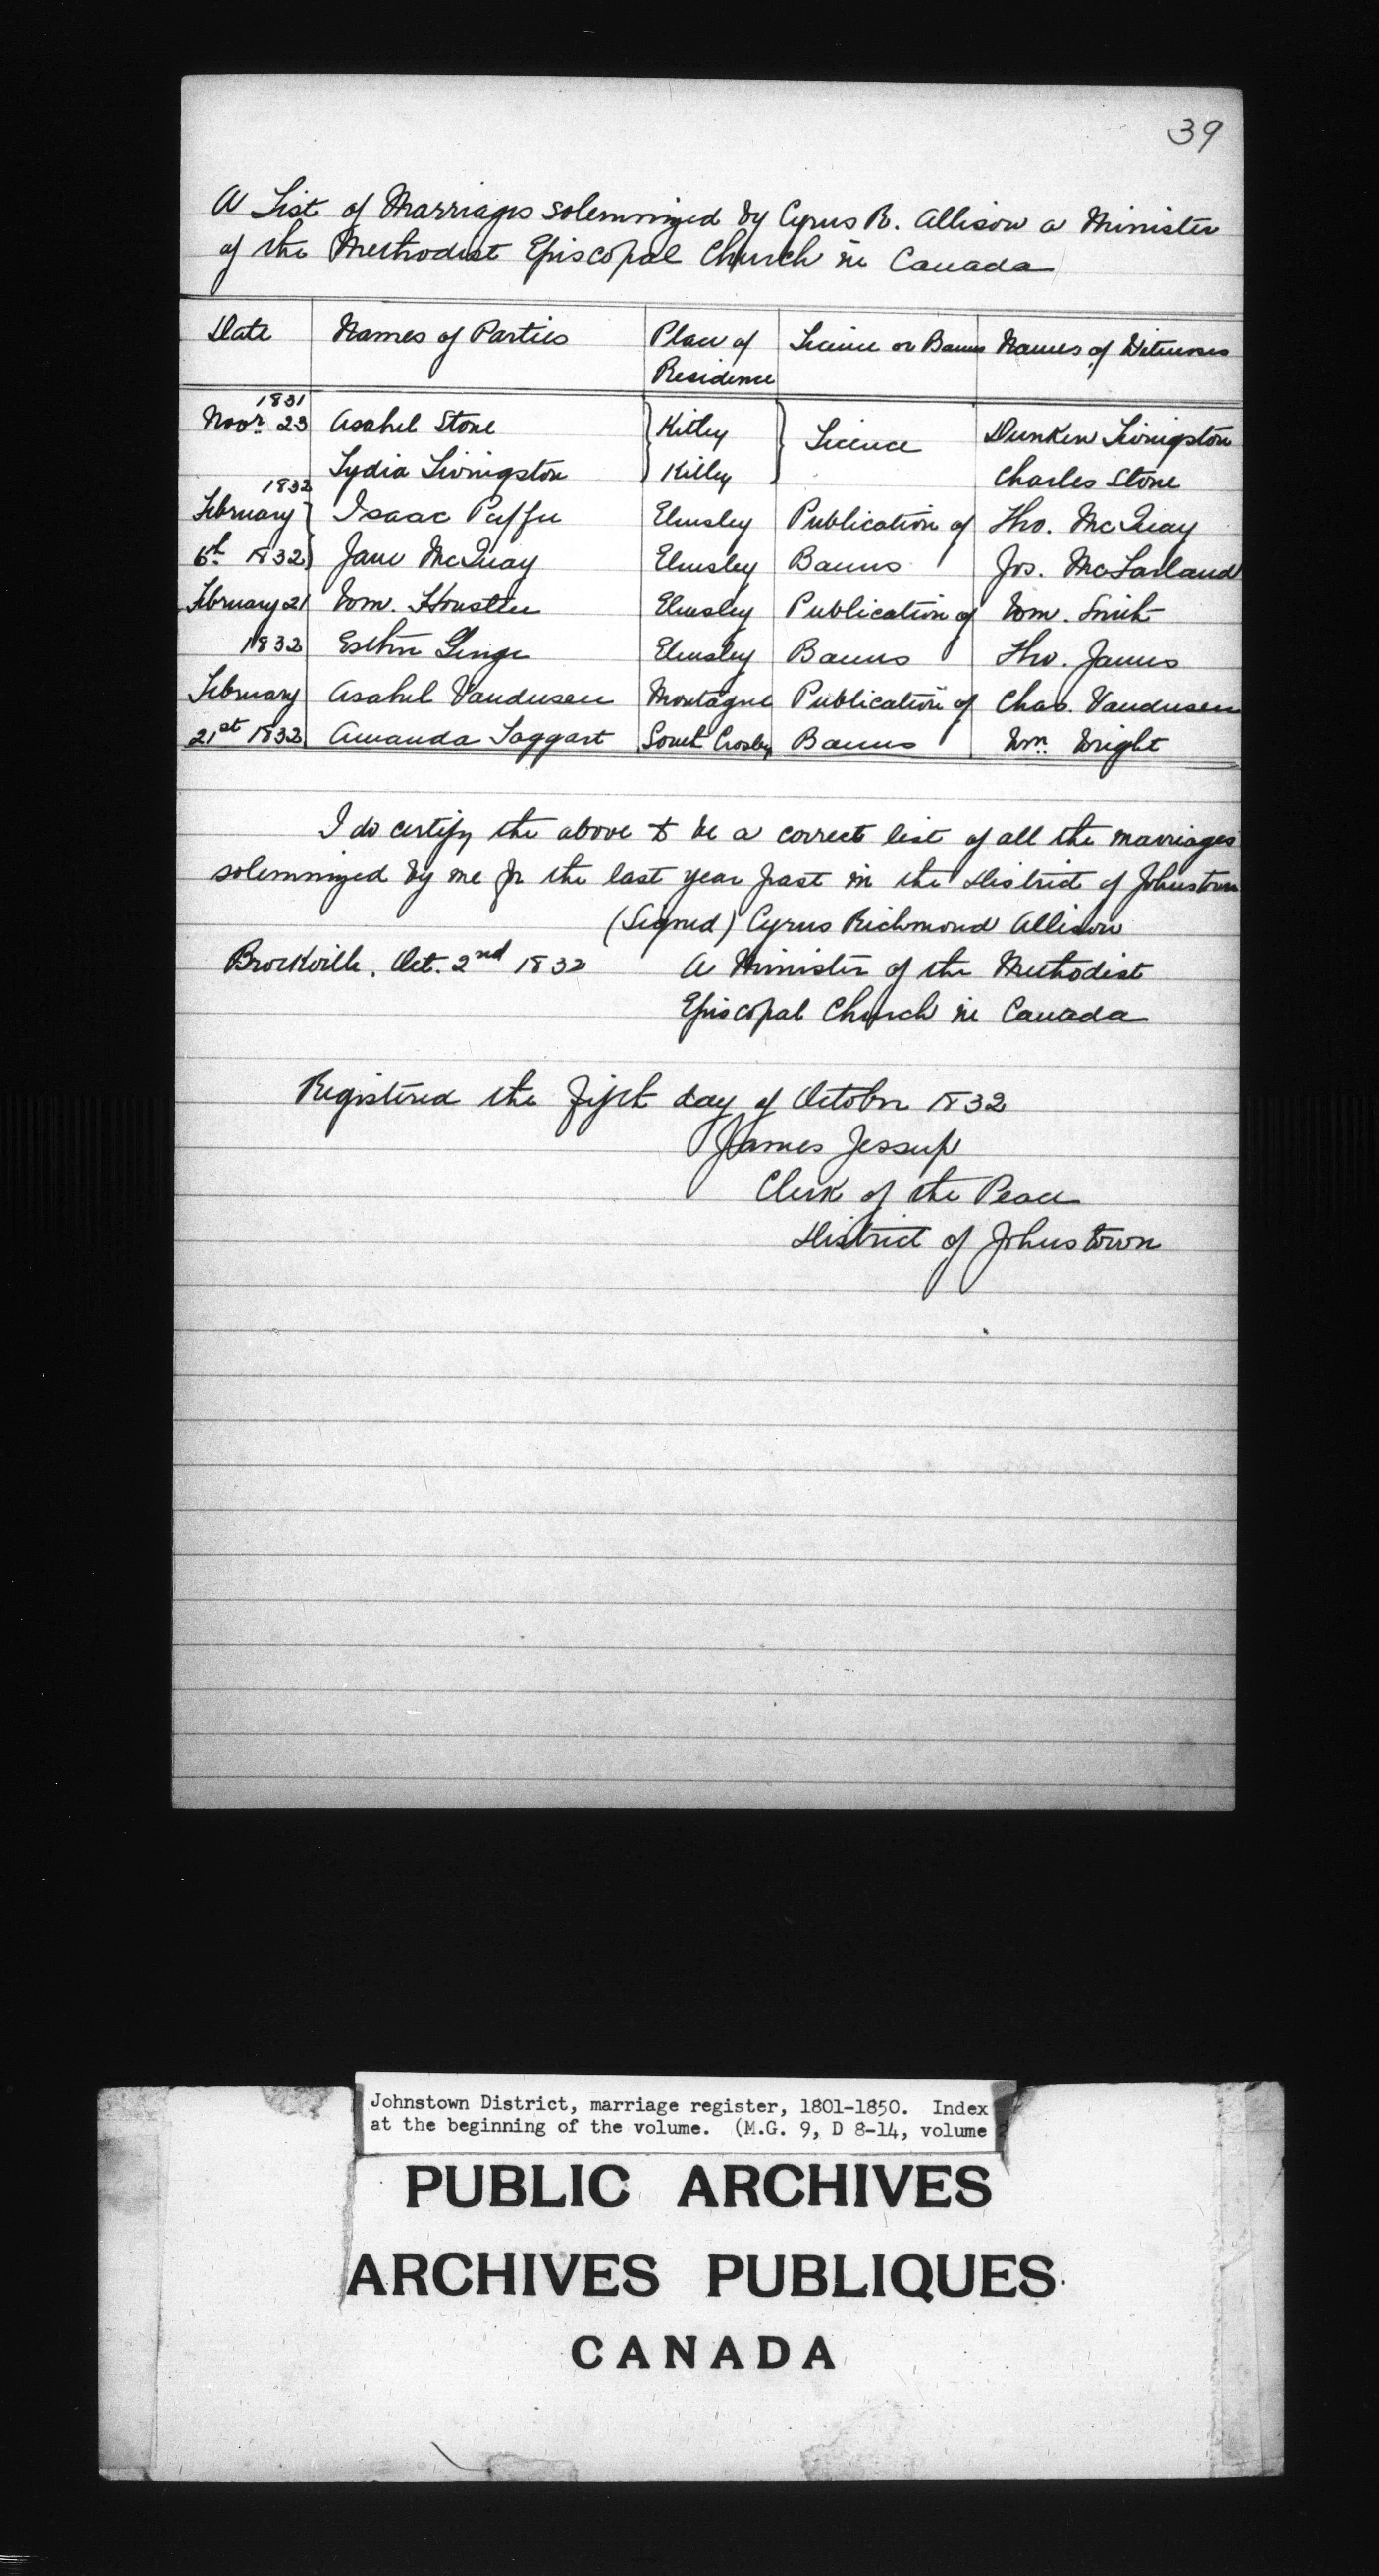 39
A List of Marriages solemnized by Cyrus R. Allison a Minister
of the Methodist Episcopal Church in Canada
Date Names of Parties Place of Licence or Banns Names of Witnesses
Residence
1831
Novr. 23 Asahel Stone Kitley Licence Dunken Livingston
Lydia Livingston Kitley Charles Stone
1832
February Isaac Elmsley Publication of Tho. McQuay
6th 1832 Jane McQuay Elmsley Banns Jos. McFarland
February 21 Wm. Elmsley Publication of Wm. Smith
1832 Esther Elmsley Banns Tho. James
February Asahel Vandusen Montague Publication of Chas. Vandusen
21st 1832 Amanda Taggart South Crosby Banns Wm. Wright
I do certify the above to be a correct list of all the marriages
solemnized by me for the last year past in the District of Johnstown
(Signed) Cyrus Richmond Allison
Brockville, Oct. 2nd 1832 A Minister of the Methodist
Episcopal Church in Canada
Registered the fifth day of October 1832
James Jessup
Clerk of the Peace
District of Johnstown
Johnstown District, marriage register, 1801-1850. Index
at the beginning of the volume. (M.G. 9, D 8-14, volume
PUBLIC ARCHIVES
ARCHIVES PUBLIQUES
CANADA